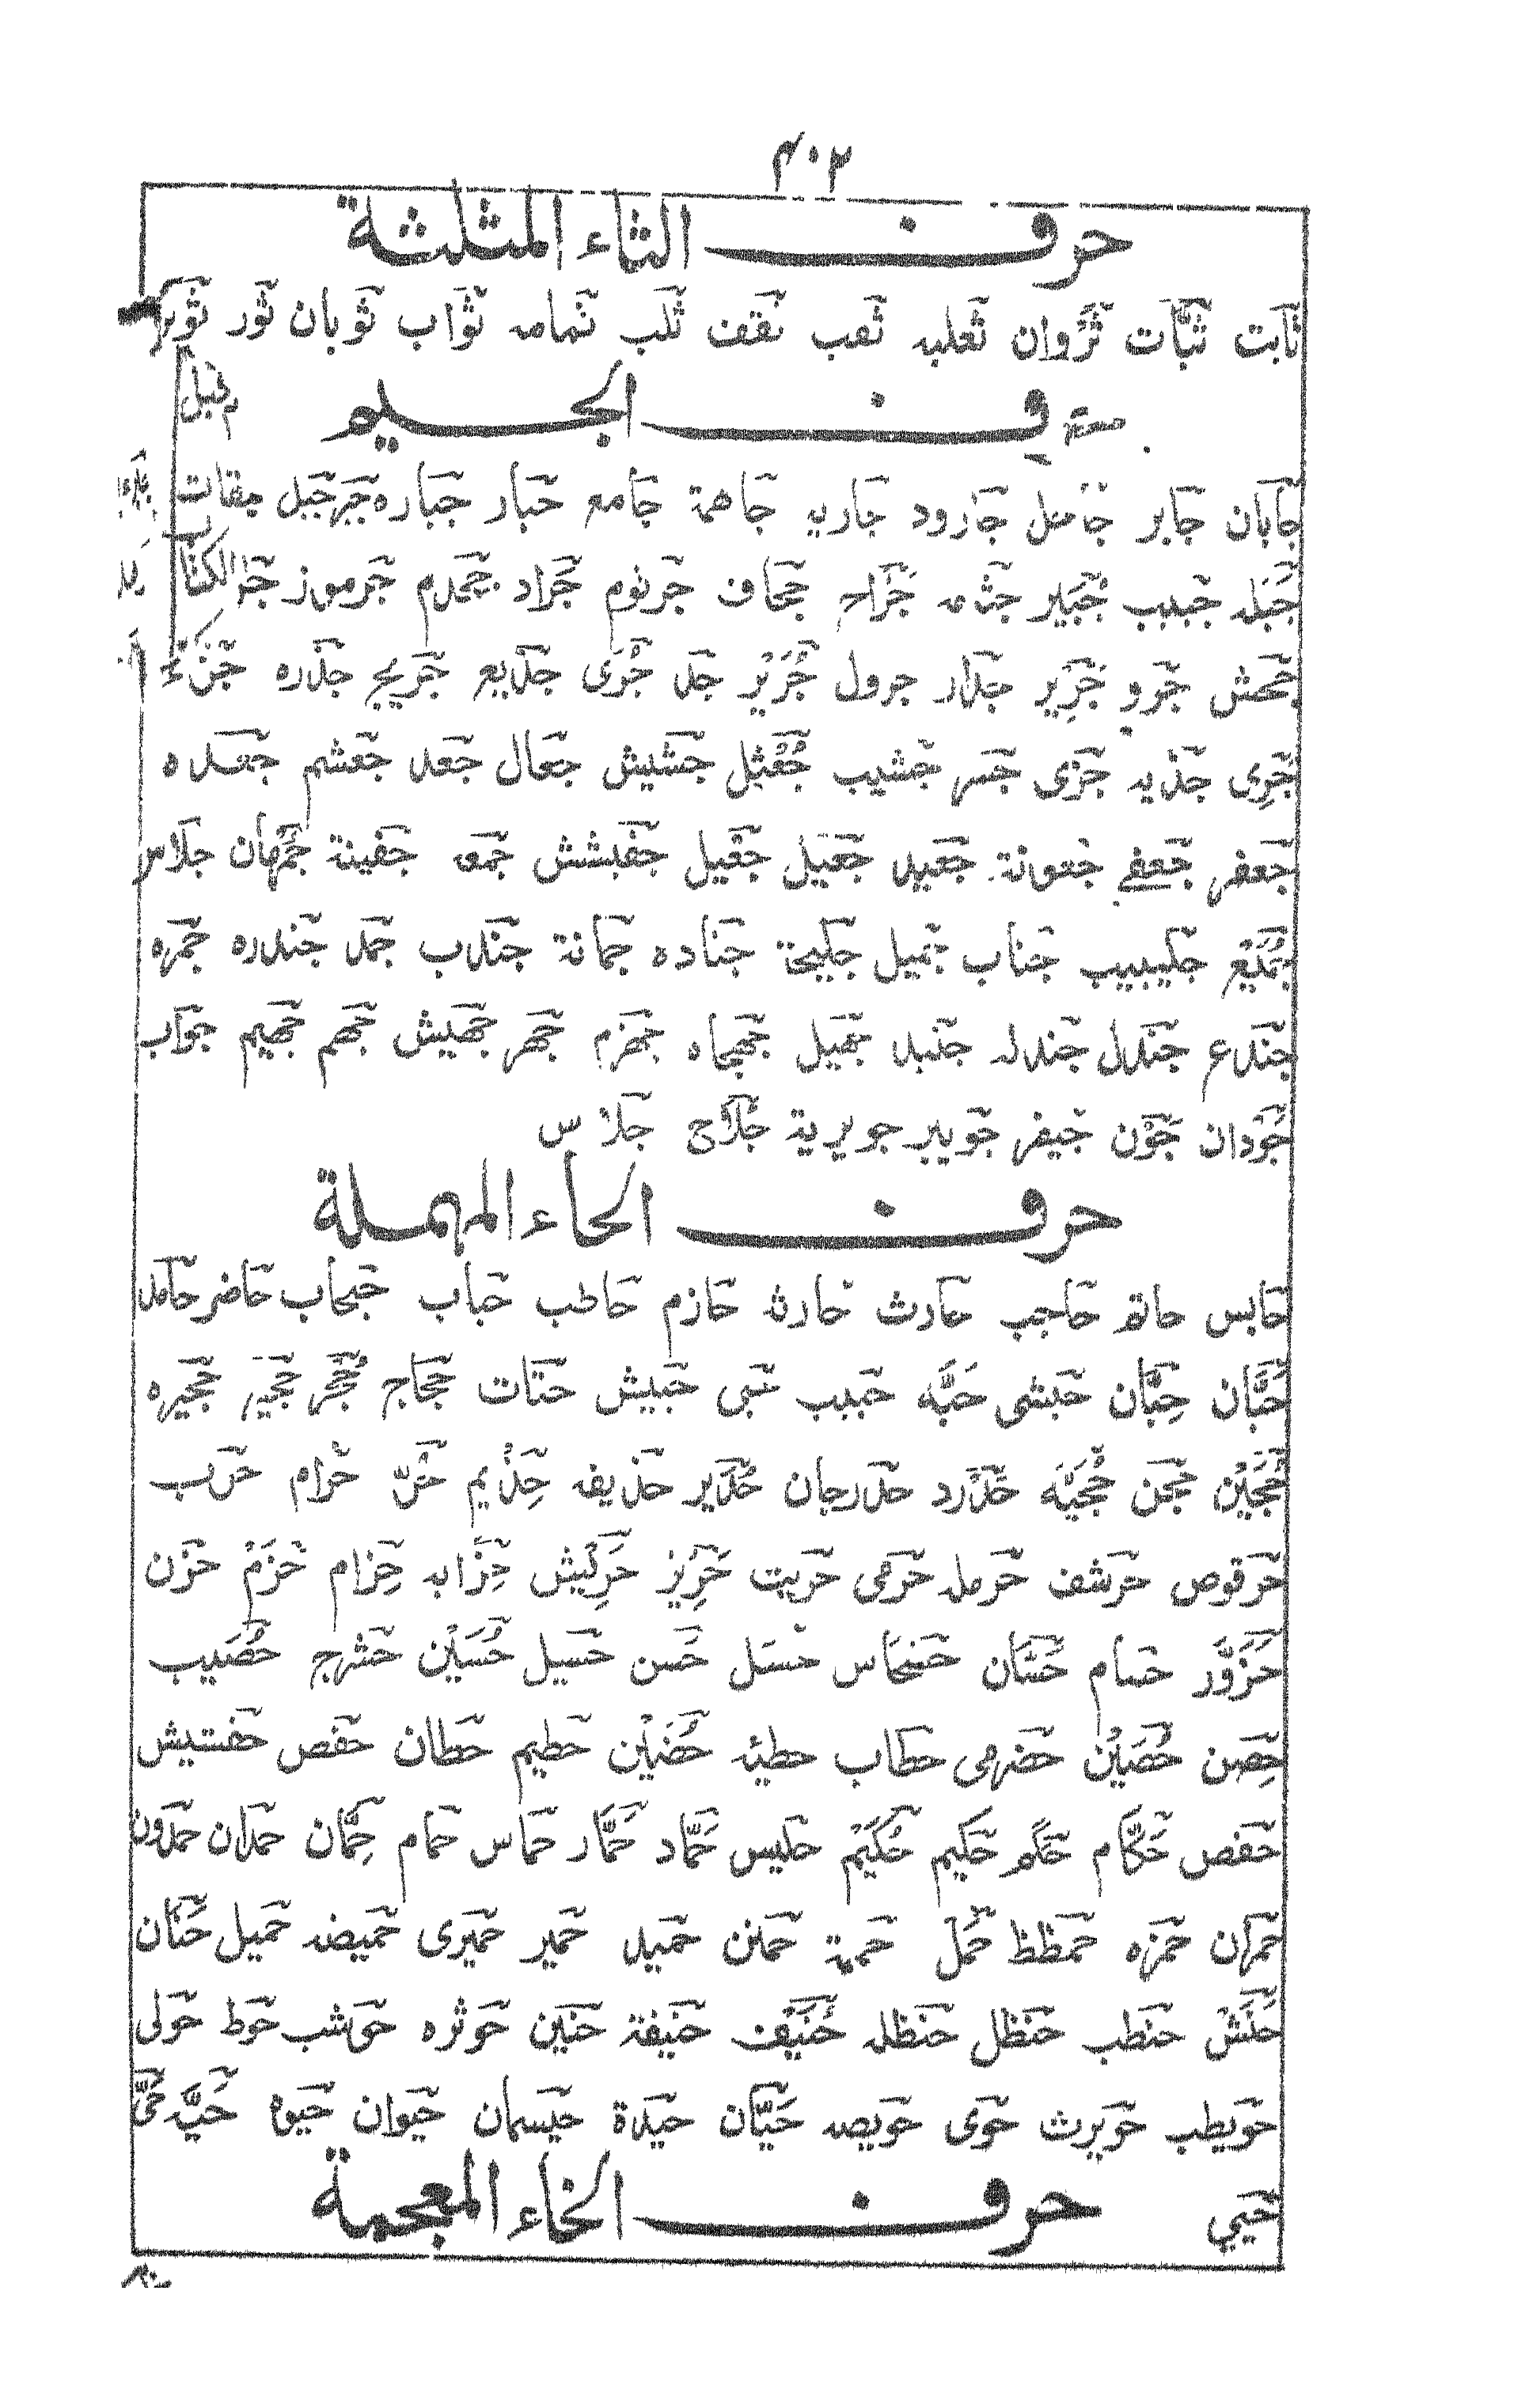 ٣٠٢
حرف الثاء المثلثة
ثابت ثبّات ثروان ثعلبه ثعب ثقف ثلب ثمامه ثواب ثوبان ثور ثوير
حرف الجيم
جابان جابر جامل جارود جاريه جاهمة جامع جبار جباره جبر جبل
جبله جبيب جبير جراح جحاف جرثوم جراد جحدم جرموز
جحش جرو جرير جدار جرول جرير جد جرى جديع جريج جدره
جرى جذيه جزى جسر جشيب جعثل جشيش جعال جعد جعشم جعده
جعفر جعفى جعونة جعيد جعيل جفيل جفشيش جمعه جفينة جمهان جلاس
جميع جليبيب جناب جميل جليحة جناده جمانة جندب جمد جندره جمره
جندع جندل جندله جنيد جهيل جهجاه جهزم جهر جهيش جهم جهيم جواب
جودان جون جيفر جويبر جويرية جلاح جلاس
حرف الحاء المهملة
حابس حاتم حاجب حارث حارثه حازم حاطب حباب حبحاب حاضر حامد
حبّان حِبّان حبشى حبّه حبيب حبى حبيش حتات حجاج حجر حجير حجيره
حجين حجن حجيّه حدرد حدرجان حدير حذيفه حذيم حرّ حرام حرب
حرقوص حرشف حرمله حرمى حريث حريز حريش حزابه حزام حزم حزن
حزوّر حسام حسّان حسحاس حسل حسن حسيل حسين حشرج حصيب
حصن حصين حضرمى حطاب حطيئه حضين حطيم حطان حفص حفشيش
حفص حكّام حكم حكيم حُكيم حليس حمّاد حمّار حماس حمام حمّان حمدان حمدون
حمران حمزه حمظظ حمل حممة حمنن حميد حمير حميرى حميضه حميل حنّان
حنش حنطب حنظل حنظله حنيف حنيفة حنين حوثره حوشب حوط حولى
حويطب حويرث حوى حويصه حيّان حيدة حيسمان حيوان حيوه حيّه حىّ
حيي حرف الخاء المعجمة